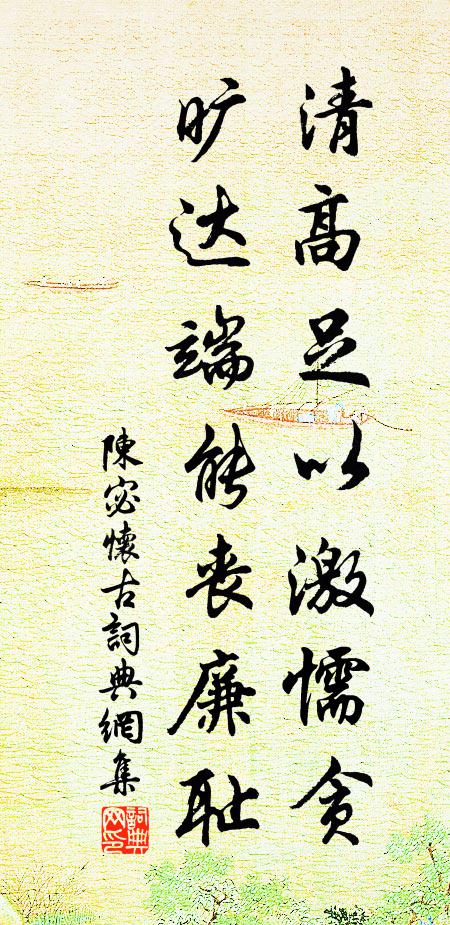 清高足以激懦贪
旷达端能丧廉耻
陳宓懷古詞典網集
詞典网印